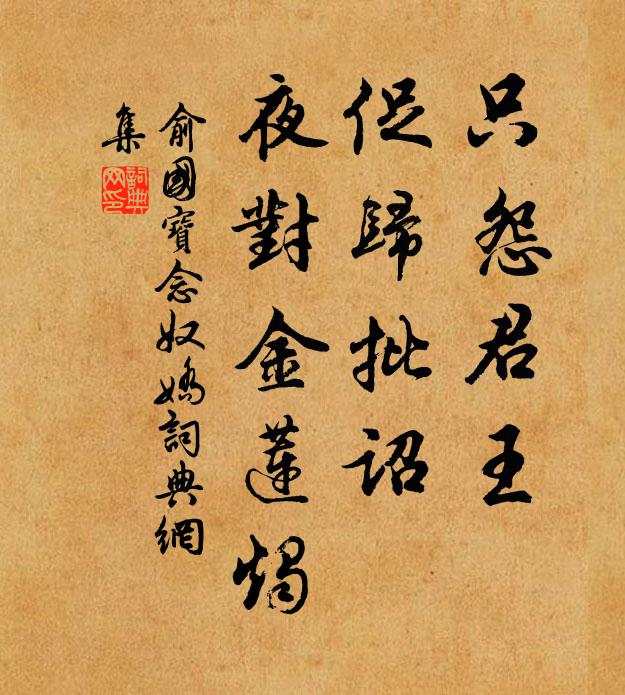 只怨君王
促歸批詔
夜對金蓮燭
俞國寶念奴嬌詞典網
集
詞典
网印